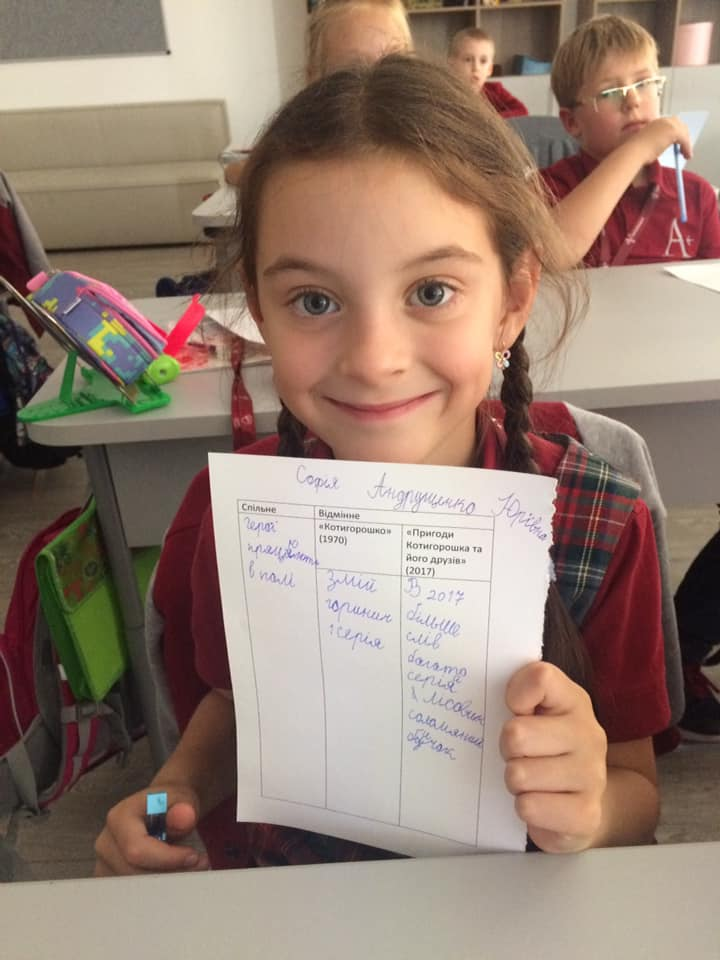 Софія Андрущенко Юріївна
Спільне
Відмінне
«Котигорошко»
(1970)
«Пригоди
Котигорошка та
його друзів»
(2017)
герої
працюють
в полі
Змій
горинич
1 серія
В 2017
більше
слів
багато
серій
Лісовик
солом'яний
бичок
A+